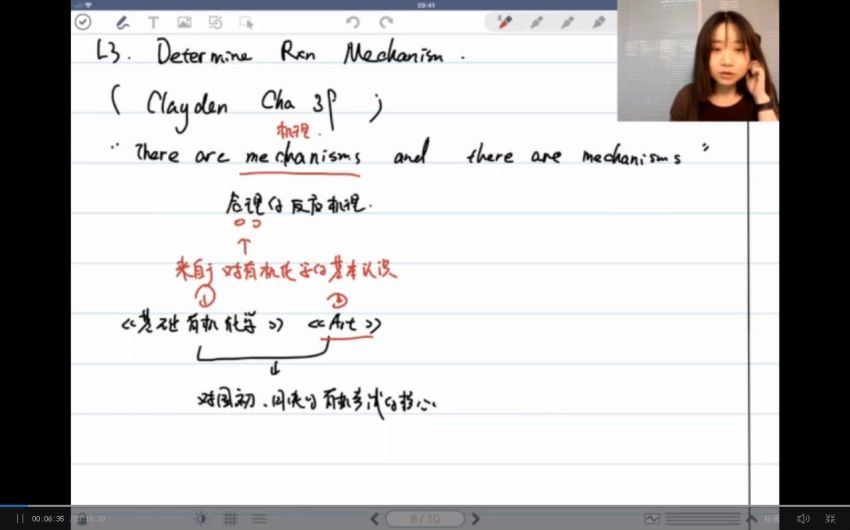 09:41
L3. Determine Rxn Mechanism.
( Clayden Cha 39 ;
机理.
" There are mechanisms and there are mechanisms "
合理的反应机理.
来自于 对有机化学的基本认识
① ②
《基础有机化学》 《Art》
对国初、国决的有机考试的核心
00:06:35
6/10
标清